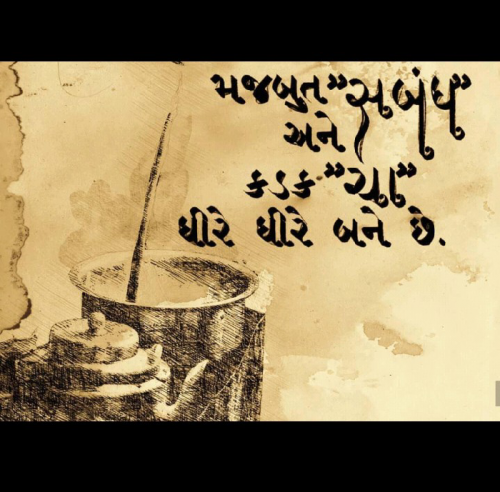 મજબુત"સબંધ"
અને
કડક "ચા"
ધીરે ધીરે બને છે.